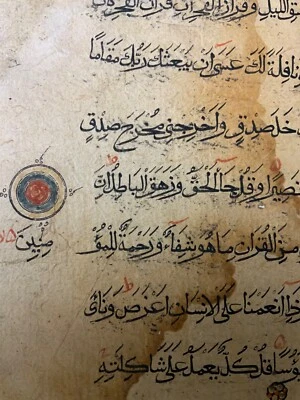 الَّيْلِ وَقُرْاٰنَ الْفَجْرِ اِنَّ قُرْاٰنَ الْفَجْرِ
نَافِلَةً لَكَ عَسٰى اَنْ يَبْعَثَكَ رَبُّكَ مَقَامًا
صِدْقٍ وَاَخْرِجْنِي مُخْرَجَ صِدْقٍ
نَصِيرًا وَقُلْ جَاءَ الْحَقُّ وَزَهَقَ الْبَاطِلُ اِنَّ
مِنَ الْقُرْاٰنِ مَا هُوَ شِفَاءٌ وَرَحْمَةٌ لِلْمُؤْ
اَنْعَمْنَا عَلَى الْاِنْسَانِ اَعْرَضَ وَنَاٰى
قُلْ كُلٌّ يَعْمَلُ عَلٰى شَاكِلَتِهِ